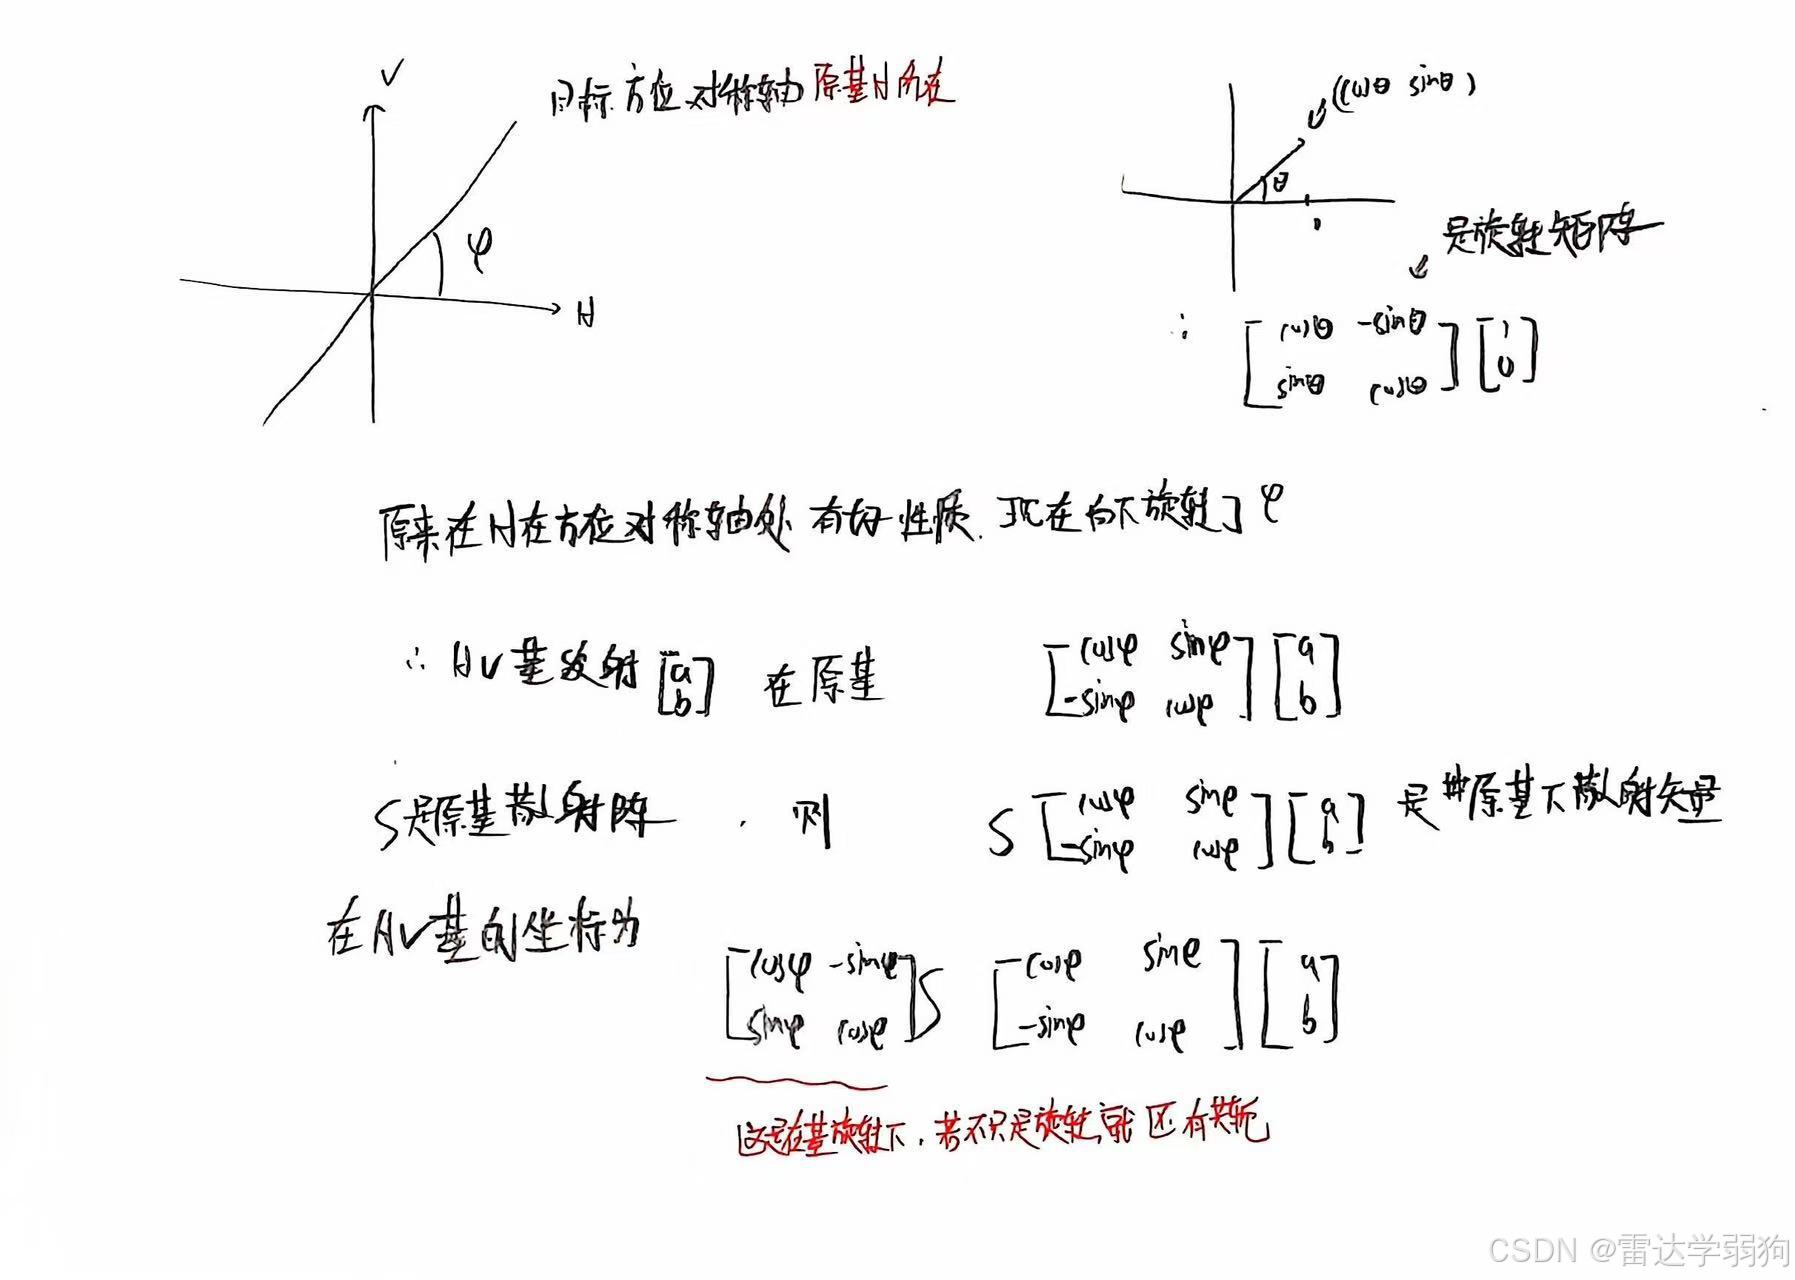 V
目标方位对称轴 原基H所在
φ
H
(cosθ sinθ)
θ
1
是旋转矩阵
∴ [cosθ -sinθ] [1]
[sinθ cosθ] [0]
原来在H在方位对称轴处 有好性质. 现在向下旋转了φ
∴ HV基发射 [a] 在原基 [cosφ sinφ] [a]
[b] [-sinφ cosφ] [b]
S是原基散射阵 , 则 S [cosφ sinφ] [a] 是原基下散射矢量
[-sinφ cosφ] [b]
在HV基的坐标为
[cosφ -sinφ] S [cosφ sinφ] [a]
[sinφ cosφ] [-sinφ cosφ] [b]
这是在基旋转下, 若不只是旋转, 就还有共轭
CSDN @雷达学弱狗